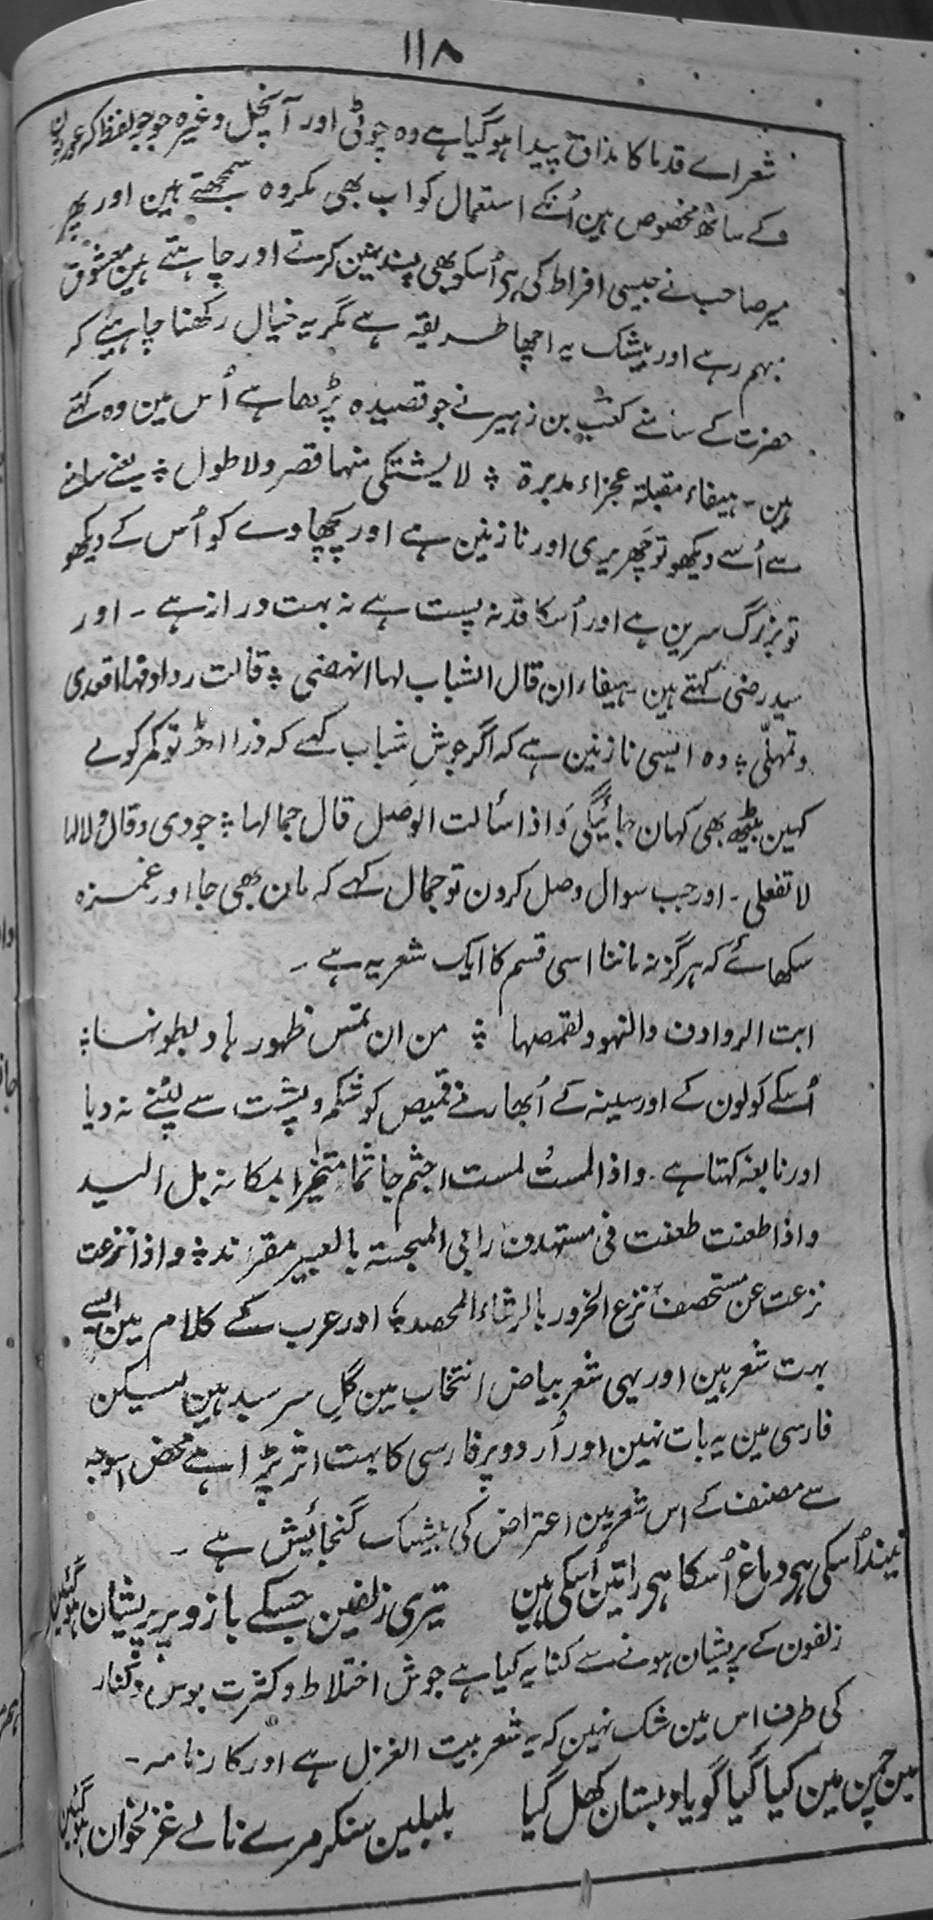 ۱۱۸
شعراے قدما کا مذاق پیدا ہوگیا ہے وہ چوٹی اور آنچل وغیرہ جو جو لفظ کہ عورتون
کے ساتھ مخصوص ہین اُنکے استعمال کو اب بھی مکروہ سمجھتے ہین اور پھر
میر صاحب نے جیسی افراط کی ہی اُسکو بھی پسند نہین کرتے اور چاہتے ہین معشوق
مبہم رہے اور بیشک یہ اچھا طریقہ ہے مگر یہ خیال رکھنا چاہیئے کہ
حضرت کے سامنے کعب بن زہیر نے جو قصیدہ پڑھا ہے اُس مین وہ کہتے
ہین ۔ ہیفاء مقبلة عجزاء مدبرة ؞ لا یشتکی منہا قصر ولا طول ؞ یعنے سامنے
سے اُسے دیکھو تو چھریری اور نازنین ہے اور پچھاوے کو اُس کے دیکھو
تو بزرگ سرین ہے اور اُسکا قد نہ پست ہے نہ بہت دراز ہے ۔ اور
سید رضی کہتے ہین ۔ ہیفاء ان قال الشباب لہا انہضی ؞ قالت روادفہا اقعدی
وتمہلّی ؞ وہ ایسی نازنین ہے کہ اگر جوشِ شباب کہے کہ ذرا اوٹھ تو کمر کولے
کہین بیٹھ بھی کہان جائیگی وَاذا سألت الوصل قال جمالہا ؞ جودی وقال دلالہا
لا تفعلی ۔ اور جب سوال وصل کرون تو جمال کہے کہ مان بھی جا اور غمزہ
سکھائے کہ ہرگز نہ ماننا اسی قسم کا ایک شعر یہ ہے ۔
ابت الروادف والنہود لقمصہا ؞ من ان تمس ظہورہا وبطونہا ؞
اُسکے کولون کے اور سینہ کے اُبھار نے قمیص کو شکم و پشت سے لپٹنے نہ دیا
اور نابغہ کہتا ہے ۔ واذا لمستُ لمست اجثم جاثما متحیزا بمکانہ مل الید
واذا طعنت طعنت فی مستہدف رابی المجسة بالعبیر مقرمد ؞ واذا نزعت
نزعت عن مستحصف نزع الحزور بالرشاء المحصد ؞ اور عرب کے کلام مین ایسے
بہت شعر ہین اور یہی شعر بیاض انتخاب مین گل سر سبد ہین لیکن
فارسی مین یہ بات نہین اور اُردو پر فارسی کا بہت اثر پڑا ہے محض اسوجہ
سے مصنف کے اس شعر مین اعتراض کی بیشک گنجائیش ہے ۔
نیند اُسکی ہو دماغ اُسکا ہو راتین اُسکی ہین    تیری زلفین جسکے بازو پر پریشان ہوگئین
زلفون کے پریشان ہونے سے کنایہ کیا ہے جوش اختلاط و کثرت بوس و کنار
کی طرف اس مین شک نہین کہ یہ شعر بیت الغزل ہے اور کارنامہ ۔
مین چمن مین کیا گیا گویا دبستان کھل گیا    بلبلین سنکر مرے نالے غزلخوان ہوگئین